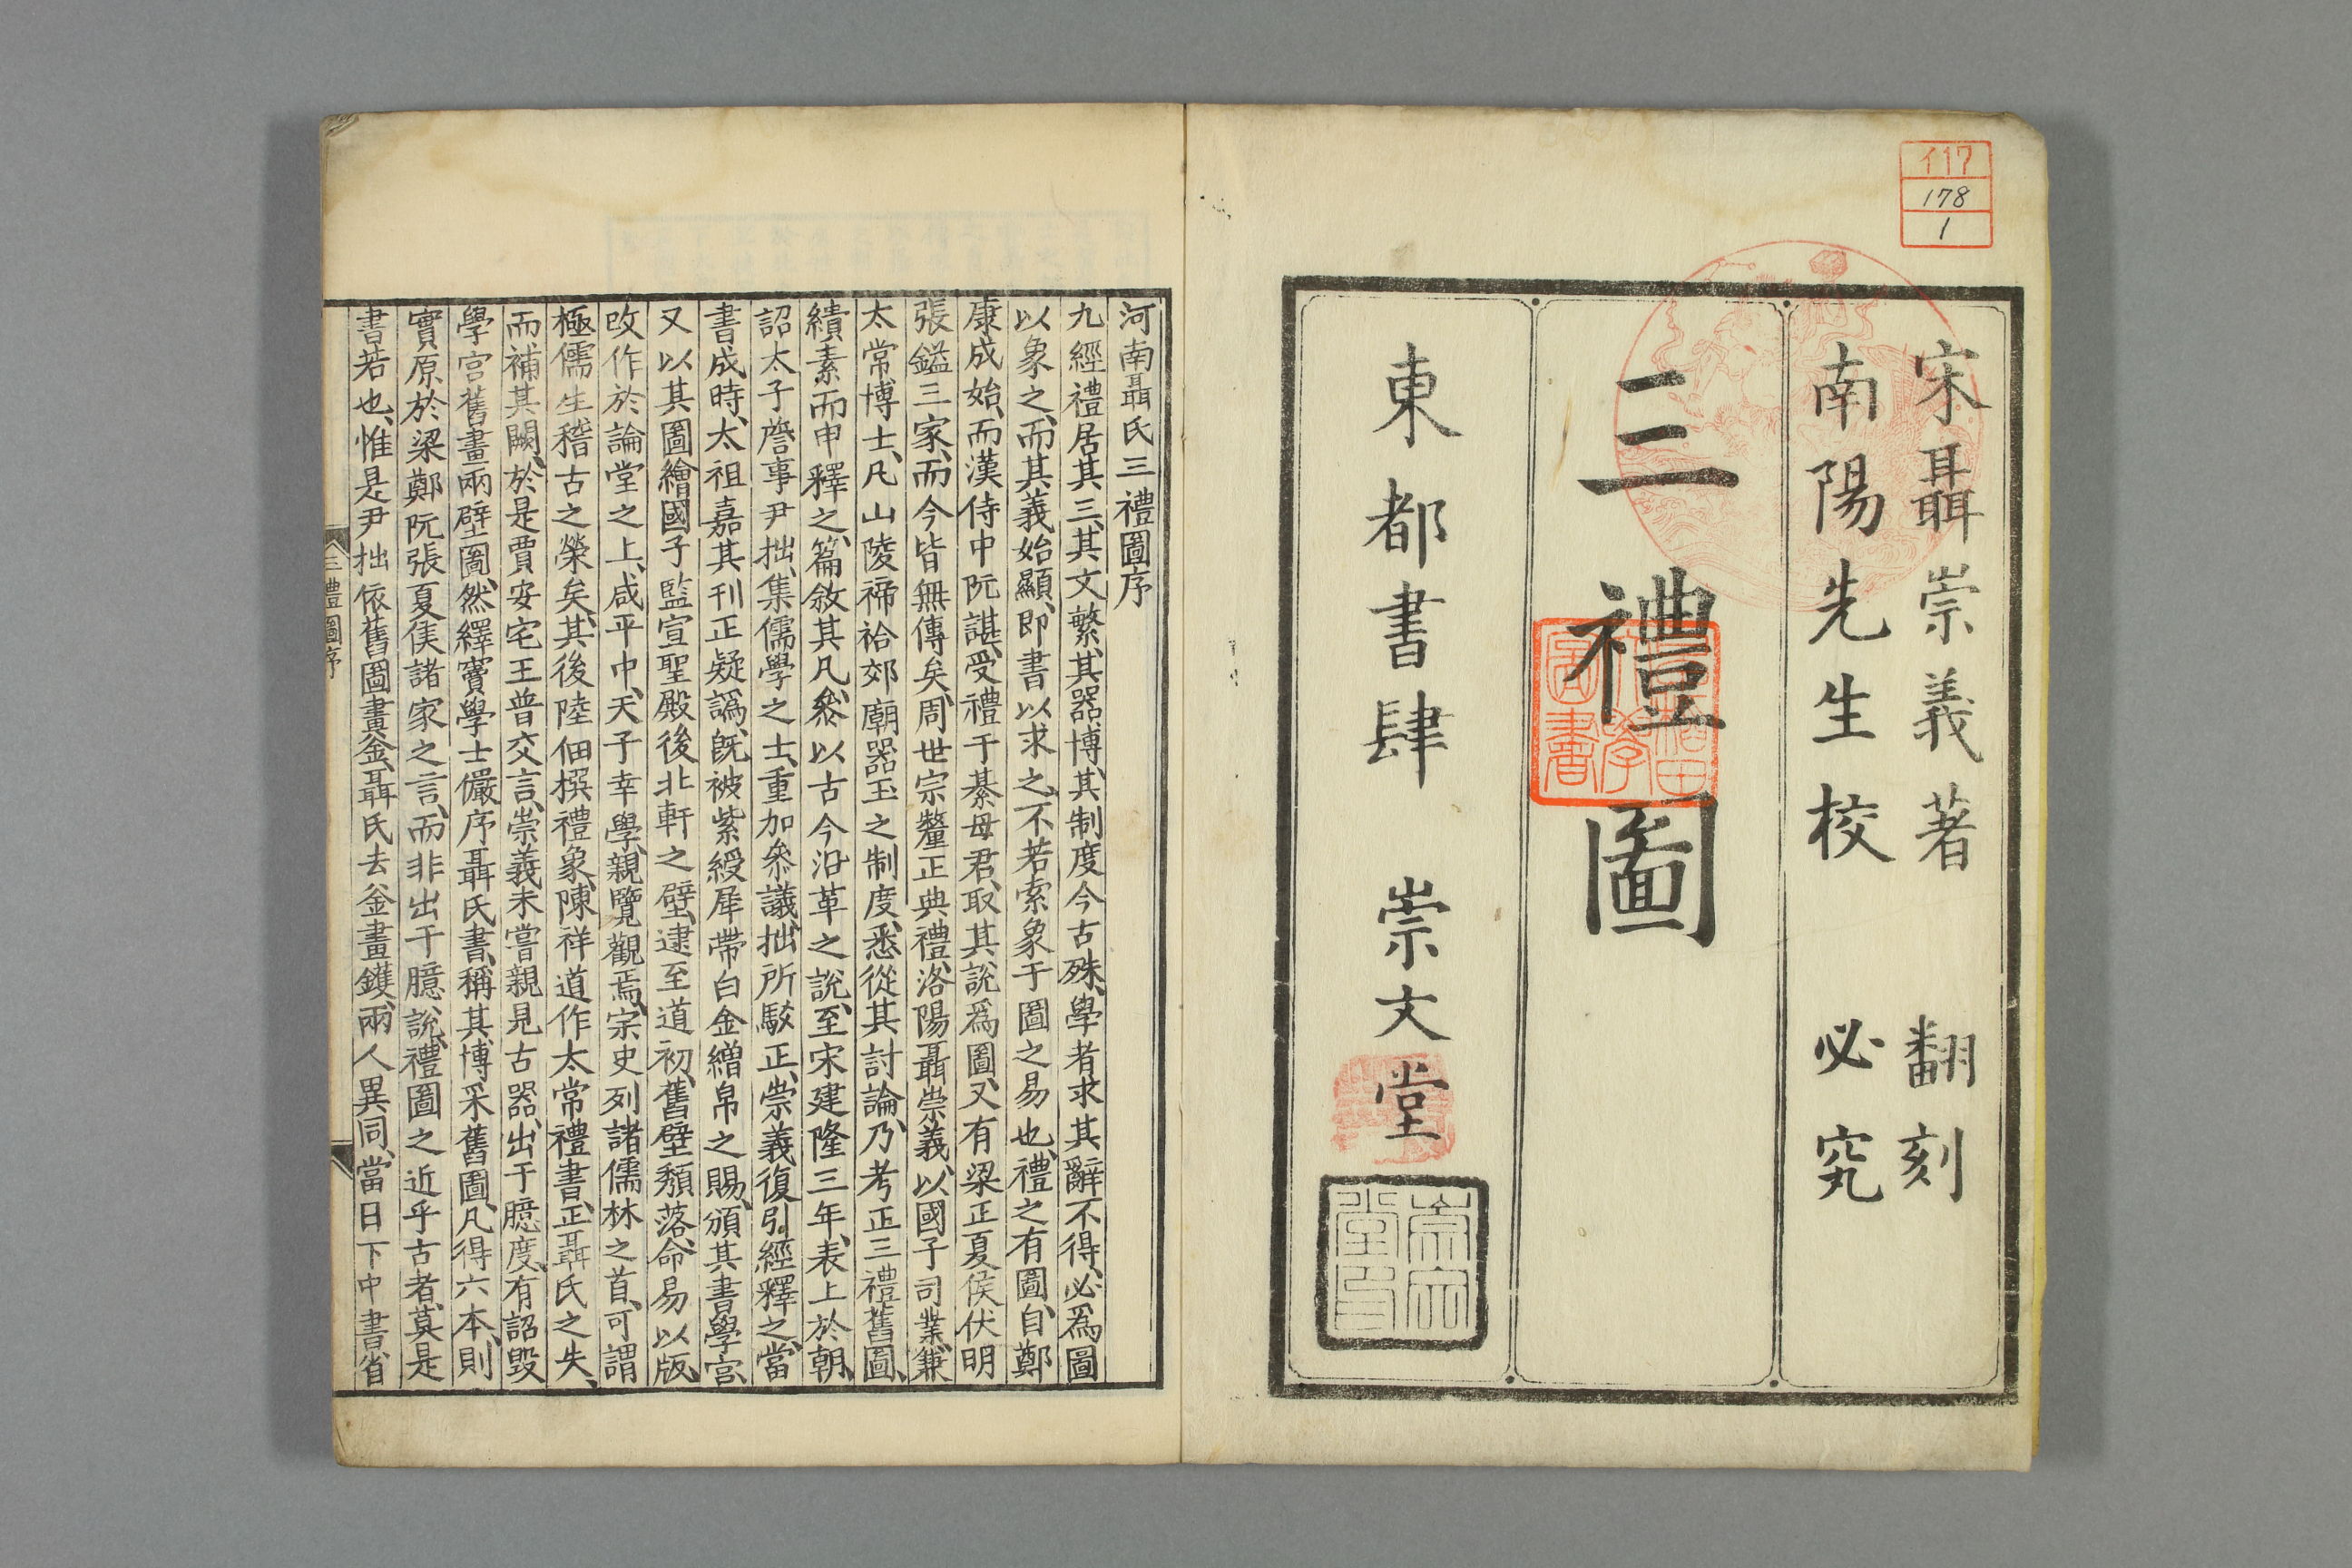 イ17
178
1
宋聶崇義著 翻刻
南陽先生校 必究
三禮圖
東都書肆 崇文堂
早稲田大学図書
河南聶氏三禮圖序
九經禮居其三、其文繁、其器博、其制度今古殊、學者求其辭不得、必爲圖
以象之、而其義始顯、即書以求之、不若索象于圖之易也、禮之有圖、自鄭
康成始、而漢侍中阮諶、受禮于綦母君、取其說爲圖、又有梁正夏侯伏明
張鎰三家、而今皆無傳矣、周世宗釐正典禮、洛陽聶崇義、以國子司業、兼
太常博士、凡山陵禘祫郊廟器玉之制度、悉從其討論、乃考正三禮舊圖、
繢素而申釋之、篇敘其凡、叅以古今沿革之說、至宋建隆三年、表上於朝、
詔太子詹事尹拙、集儒學之士、重加叅議、拙所駁正、崇義復引經釋之、當
書成時、太祖嘉其刊正疑譌、旣被紫綬犀帶白金繒帛之賜、頒其書學宮、
又以其圖繪國子監宣聖殿後北軒之壁、逮至道初、舊壁頽落、命易以版、
改作於論堂之上、咸平中、天子幸學、親覽觀焉、宗史列諸儒林之首、可謂
極儒生稽古之榮矣、其後陸佃撰禮象、陳祥道作太常禮書、正聶氏之失、
而補其闕、於是賈安宅王普交言、崇義未嘗親見古器、出于臆度、有詔毀
學宮舊畫兩壁圖、然繹竇學士儼序聶氏書、稱其博采舊圖、凡得六本、則
實原於梁鄭阮張夏侯諸家之言、而非出于臆說、禮圖之近乎古者、莫是
書若也、惟是尹拙依舊圖畫釜、聶氏去釜畫鑊、兩人異同、當日下中書省
三禮圖序